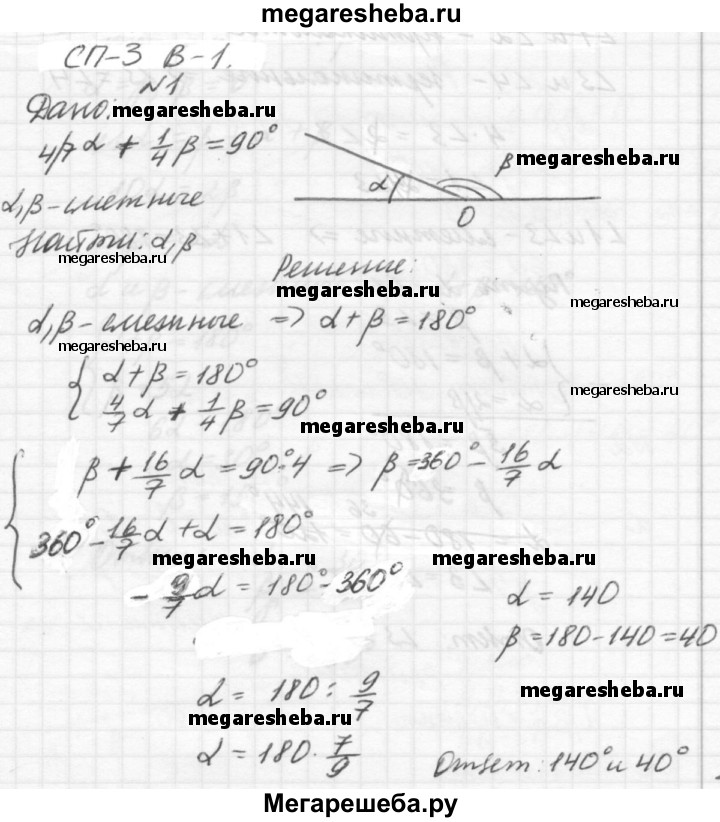 megaresheba.ru
СП-3 В-1.
№1
Дано: megaresheba.ru
4/7 α + 1/4 β = 90°
α β megaresheba.ru
O
α, β - смежные
Найти: α, β
megaresheba.ru
Решение:
megaresheba.ru
megaresheba.ru
α, β - смежные => α + β = 180°
megaresheba.ru
{ α + β = 180°
megaresheba.ru
4/7 α + 1/4 β = 90°
megaresheba.ru
{ β + 16/7 α = 90°·4 => β = 360° - 16/7 α
360° - 16/7 α + α = 180°
megaresheba.ru megaresheba.ru
- 9/7 α = 180° - 360°
α = 140
β = 180 - 140 = 40
α = 180 : 9/7
megaresheba.ru
megaresheba.ru
α = 180 · 7/9
Ответ: 140° и 40°
Мегарешеба.ру